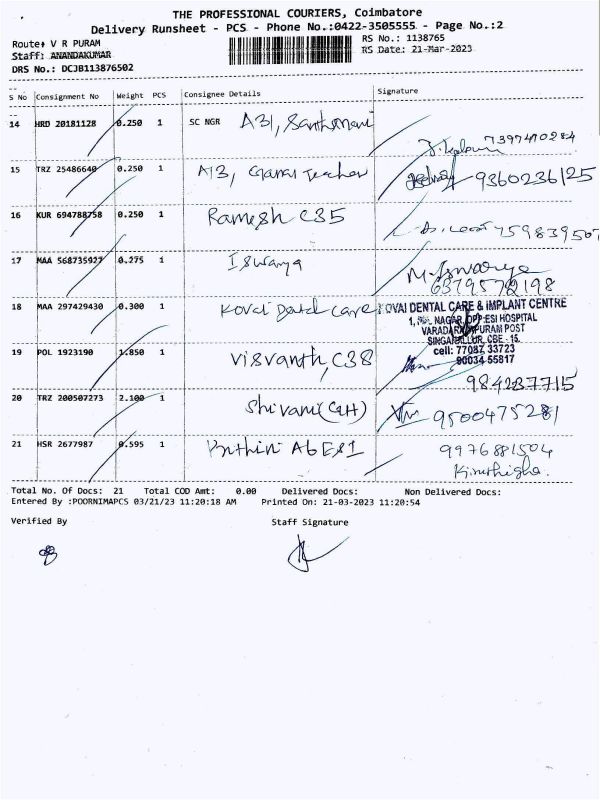 THE PROFESSIONAL COURIERS, Coimbatore
Delivery Runsheet - PCS - Phone No.:0422-3505555 - Page No.:2
Route: V R PURAM
RS No.: 1138765
Staff: ANANDAKUMAR
RS Date: 21-Mar-2023
DRS No.: DCJB113876502
S No Consignment No Weight PCS Consignee Details Signature
14 HRD 20181128 0.250 1 SC NGR A31, Santhamani
7397470284
15 TRZ 25486640 0.250 1 A13, Teacher 9360236125
16 KUR 694788758 0.250 1 Ramesh C35 759839507
17 MAA 568735927 0.275 1 Iswarya
6379572198
18 MAA 297429430 0.300 1 Kovai Dental Care KOVAI DENTAL CARE & IMPLANT CENTRE
NAGAR, OPP:ESI HOSPITAL
VARADARAJAPURAM POST
SINGANALLUR, CBE - 15.
cell: 77087 33723
90034 55817
19 POL 1923190 1.850 1 Visvanth, C38
984237715
20 TRZ 200507273 2.100 1 Shivani 9500475281
21 HSR 2677987 0.595 1 9976881504
Kiruthigha.
Total No. Of Docs: 21 Total COD Amt: 0.00 Delivered Docs: Non Delivered Docs:
Entered By :POORNIMAPCS 03/21/23 11:20:18 AM Printed On: 21-03-2023 11:20:54
Verified By Staff Signature